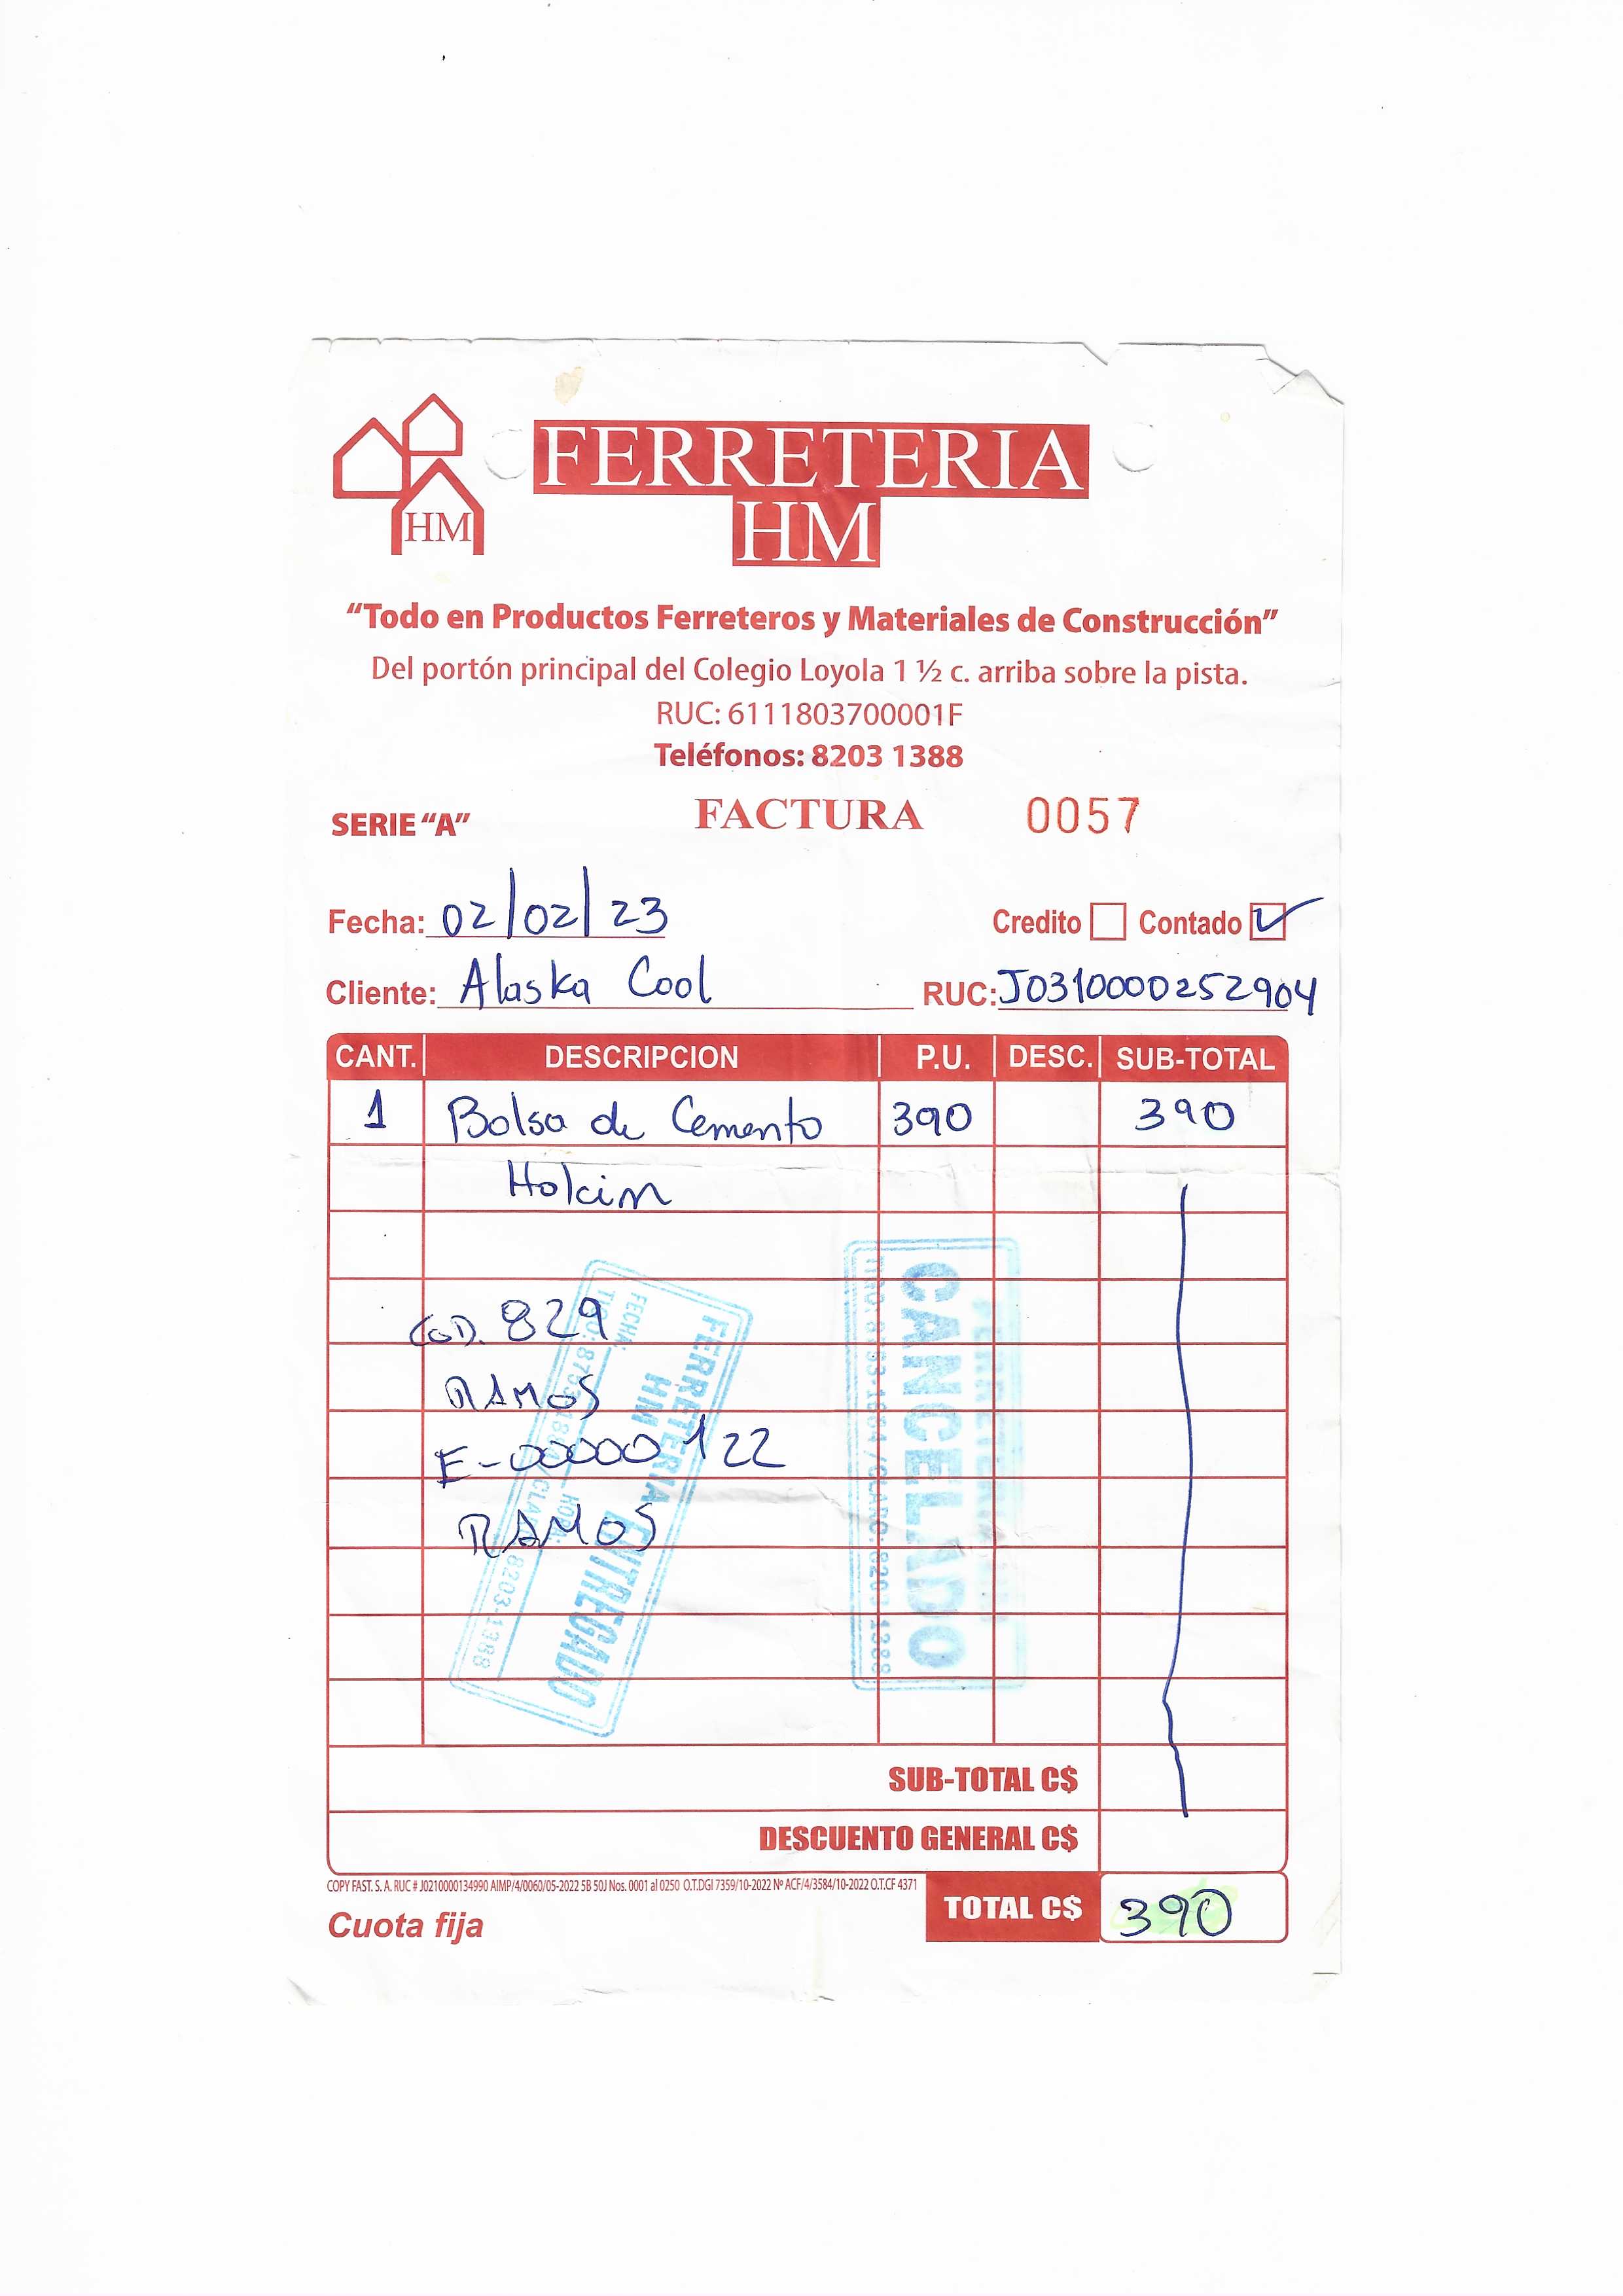 HM
FERRETERIA
HM
“Todo en Productos Ferreteros y Materiales de Construcción”
Del portón principal del Colegio Loyola 1 ½ c. arriba sobre la pista.
RUC: 6111803700001F
Teléfonos: 8203 1388
SERIE “A” FACTURA 0057
Fecha: 02/02/23 Credito Contado
Cliente: Alaska Cool RUC: J0310000252904
CANT. DESCRIPCION P.U. DESC. SUB-TOTAL
1 Bolsa de Cemento 390 390
Holcim
COD. 829
RAMOS
E-00000122
RAMOS
FERRETERIA
HM ENTREGADO
FECHA: HORA:
CANCELADO
SUB-TOTAL C$
DESCUENTO GENERAL C$
COPY FAST. S. A. RUC # J0210000134990 AIMP/4/0060/05-2022 5B 50J Nos. 0001 al 0250 O.T.DGI 7359/10-2022 Nº ACF/4/3584/10-2022 O.T.CF 4371
TOTAL C$ 390
Cuota fija